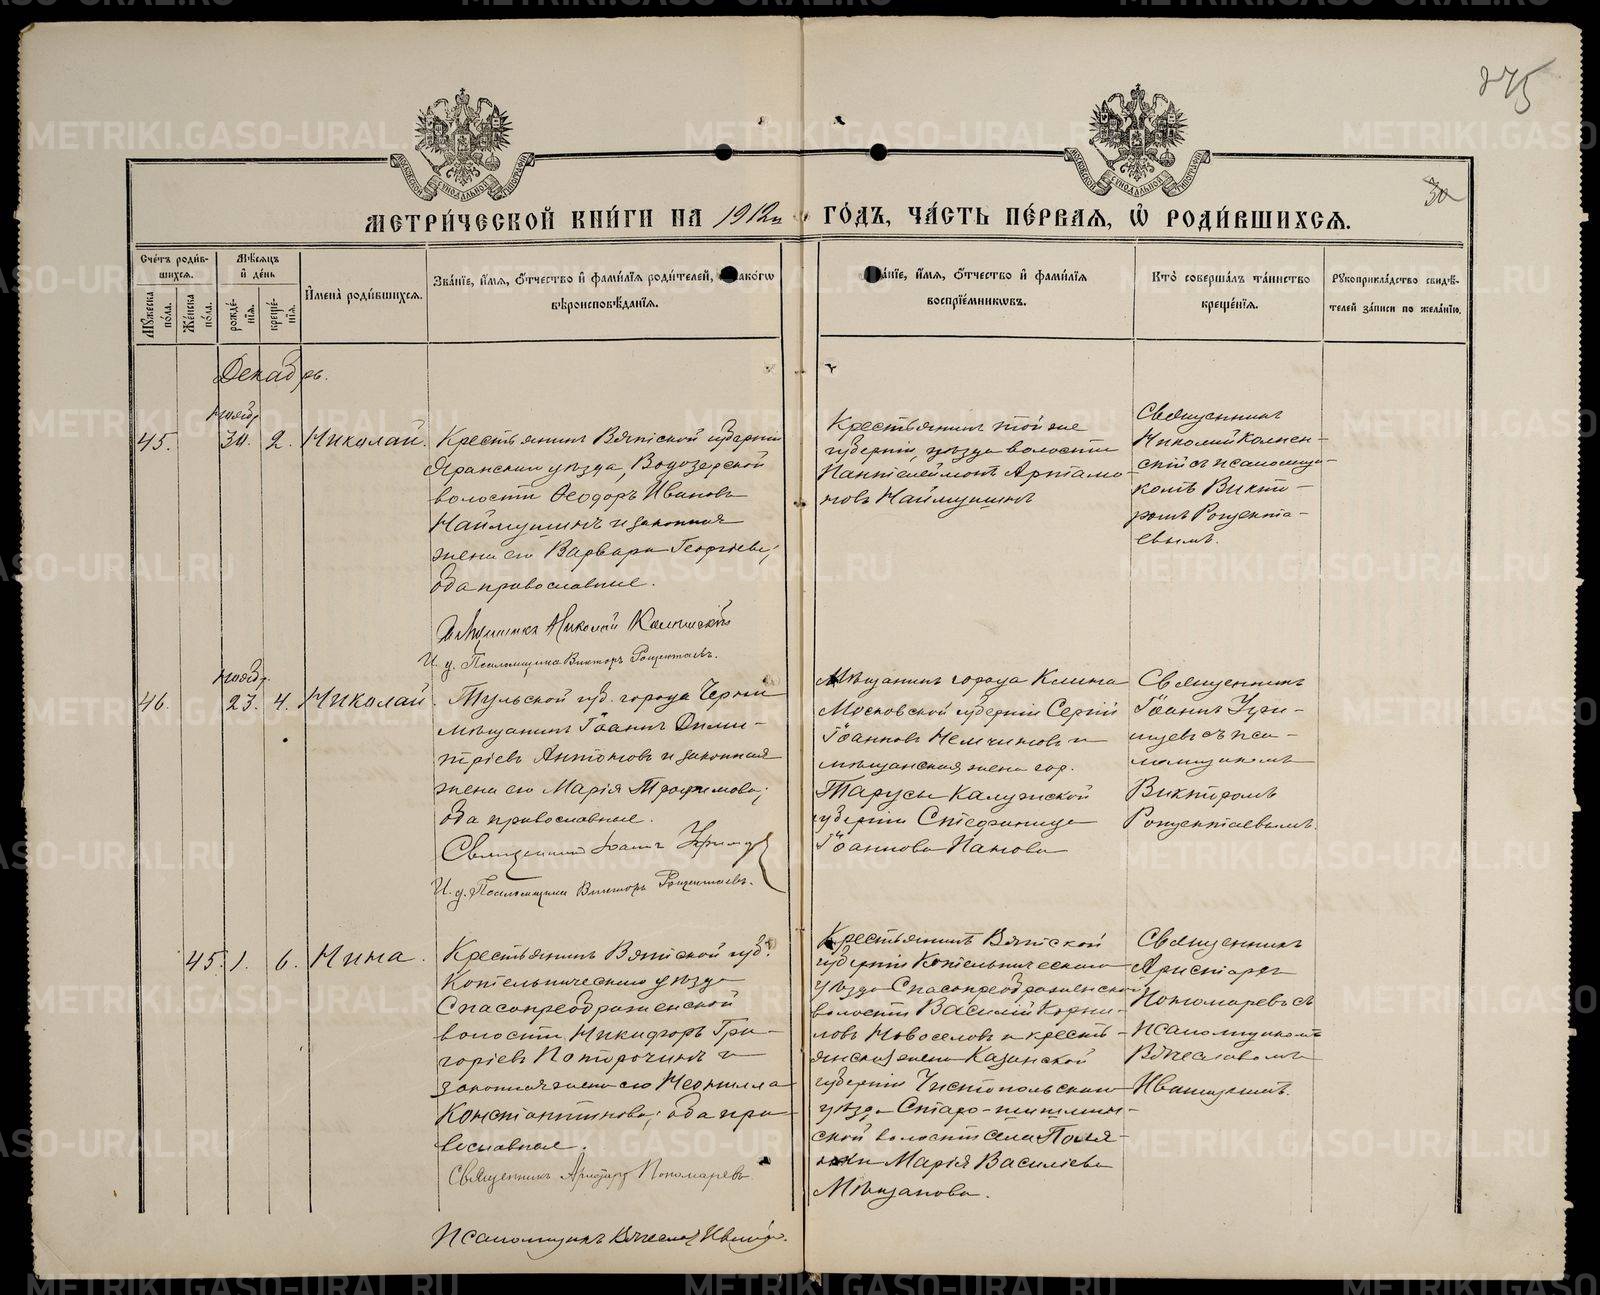 275
30
МЕТРИ́ЧЕСКОЙ КНИ́ГИ НА 1912й ГО́ДЪ, ЧА́СТЬ ПЕ́РВАЯ, Ѡ РОДИ́ВШИХСЯ.
Сче́тъ роди́в-
шихся.
Му́жеска по́ла.
Же́нска по́ла.
Мѣ́сяцъ
и де́нь
рожде́-
нія.
креще́-
нія.
И҆мена̀ роди́вшихся.
Зва́ніе, и҆́мя, ѻ҆́тчество и҆ фами́лїя роди́телей, и҆ како́гѡ
вѣроисповѣ́данїя.
Зва́ніе, и҆́мя, ѻ҆́тчество и҆ фами́лїя
воспрїе́мникѡвъ.
Кто̀ соверша́лъ та́инство
креще́нїя.
Рꙋкоприкла́дство свидѣ́-
телей за́писи по жела́нїю.
Декабрь.
Ноябр.
45. 30. 2. Николай.
Крестьянинъ Вятской губерніи
Яранскаго уѣзда, Водозерской
волости Ѳеодоръ Ивановъ
Наймушинъ и законная
жена его Варвара Георгіева;
оба православные.
Священникъ Николай Каменскій
И. д. Псаломщика Викторъ Рощектаевъ.
Крестьянинъ той же
губерніи, уѣзда волости
Пантелеймонъ Артамо-
новъ Наймушинъ
Священникъ
Николай Камен-
скій съ псаломщи-
комъ Викто-
ромъ Рощекта-
евымъ.
Ноябр.
46. 23. 4. Николай.
Тульской губ. города Черни
мѣщанинъ Іоаннъ Дими-
тріевъ Антоновъ и законная
жена его Марія Трофимова;
оба православные.
Священникъ Іоаннъ
И. д. Псаломщика Викторъ Рощектаевъ.
Мѣщанинъ города Клина
Московской губерніи Сергій
Іоанновъ Немчиновъ и
мѣщанская жена гор.
Тарусы Калужской
губерніи Стефанида
Іоаннова Панова
Священникъ
Іоаннъ
съ пса-
ломщикомъ
Викторомъ
Рощектаевымъ.
45. 1. 6. Нина.
Крестьянинъ Вятской губ.
Котельническаго уѣзда
Спасопреображенской
волости Никифоръ Гри-
горіевъ Поторочинъ и
законная жена его Неонилла
Константинова; оба пра-
вославные.
Священникъ Аристархъ Пономаревъ
Псаломщикъ Вячеславъ Ивашк.
Крестьянинъ Вятской
губерніи Котельническаго
уѣзда Спасопреображенской
волости Василій Корни-
ловъ Новоселовъ и кресть-
янская жена Казанской
губерніи Чистопольскаго
уѣзда Старо-шешмин-
ской волости села Поля-
нки Марія Василіева
Мѣшанова.
Священникъ
Аристархъ
Пономаревъ съ
псаломщикомъ
Вячеславомъ
Ивашкинымъ.
METRIKI.GASO-URAL.RU